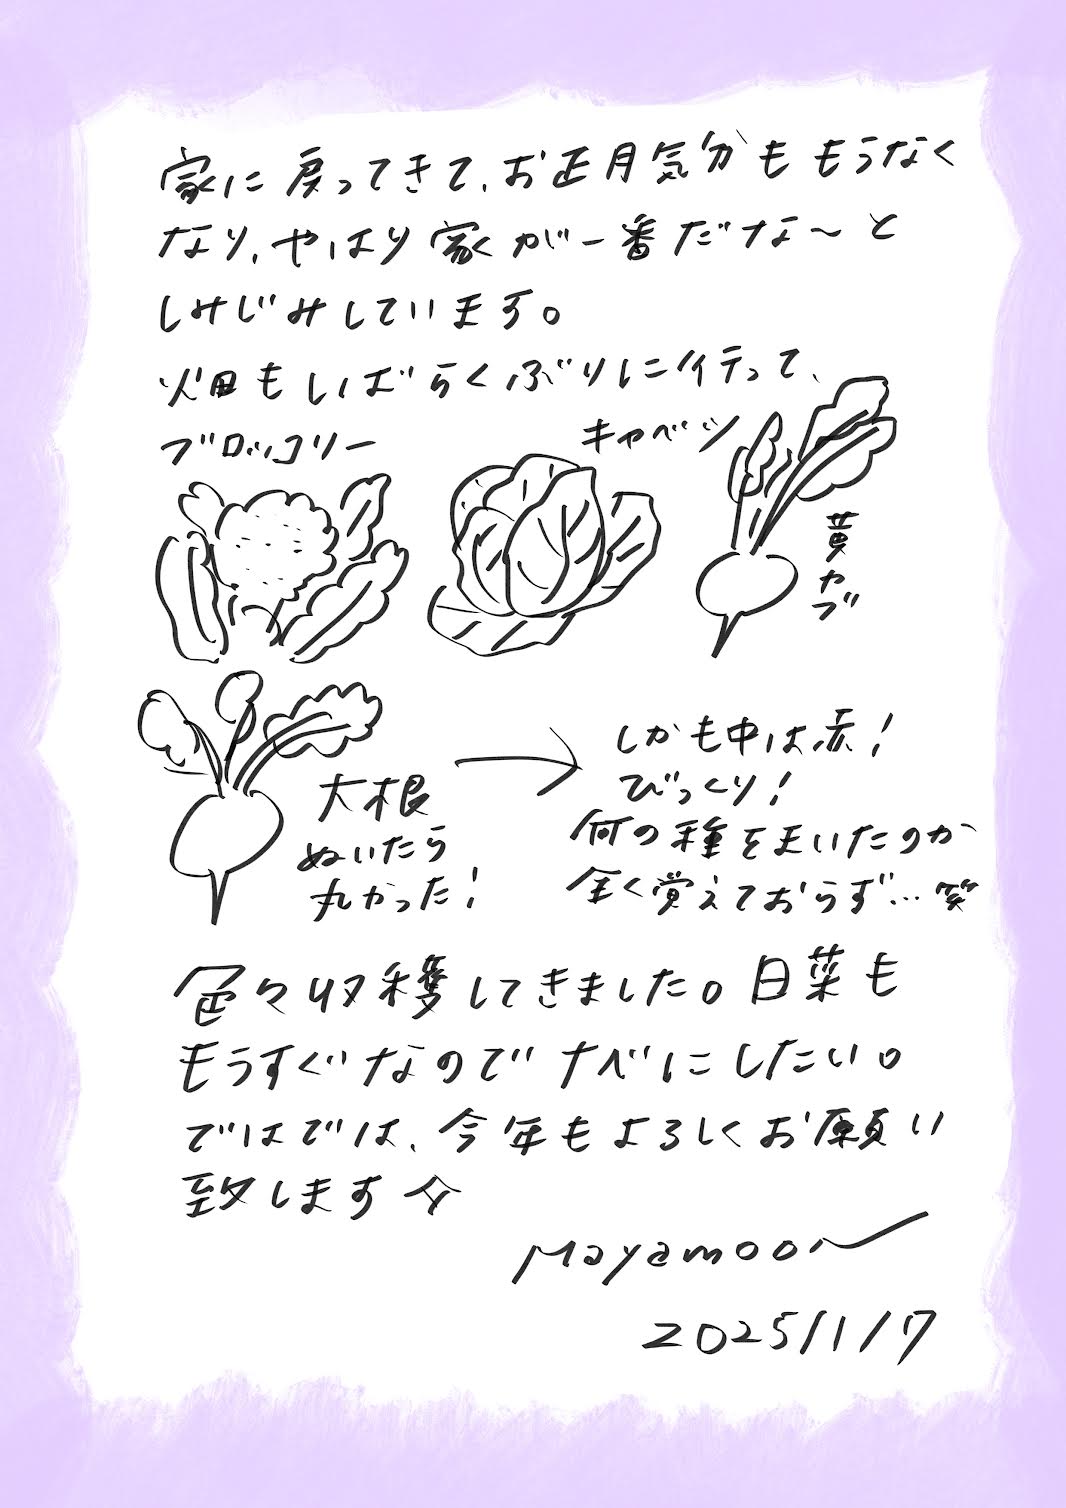 家に戻ってきて、お正月気分ももうなく
なり、やはり家が一番だな〜と
しみじみしています。
畑もしばらくぶりに行って、
ブロッコリー
キャベツ
黄カブ
大根
ぬいたら
丸かった!
しかも中は赤!
びっくり!
何の種をまいたのか
全く覚えておらず…笑
色々収穫してきました。白菜も
もうすぐなのでナベにしたい。
ではでは、今年もよろしくお願い
致します☆
Mayamoon
2025/1/7